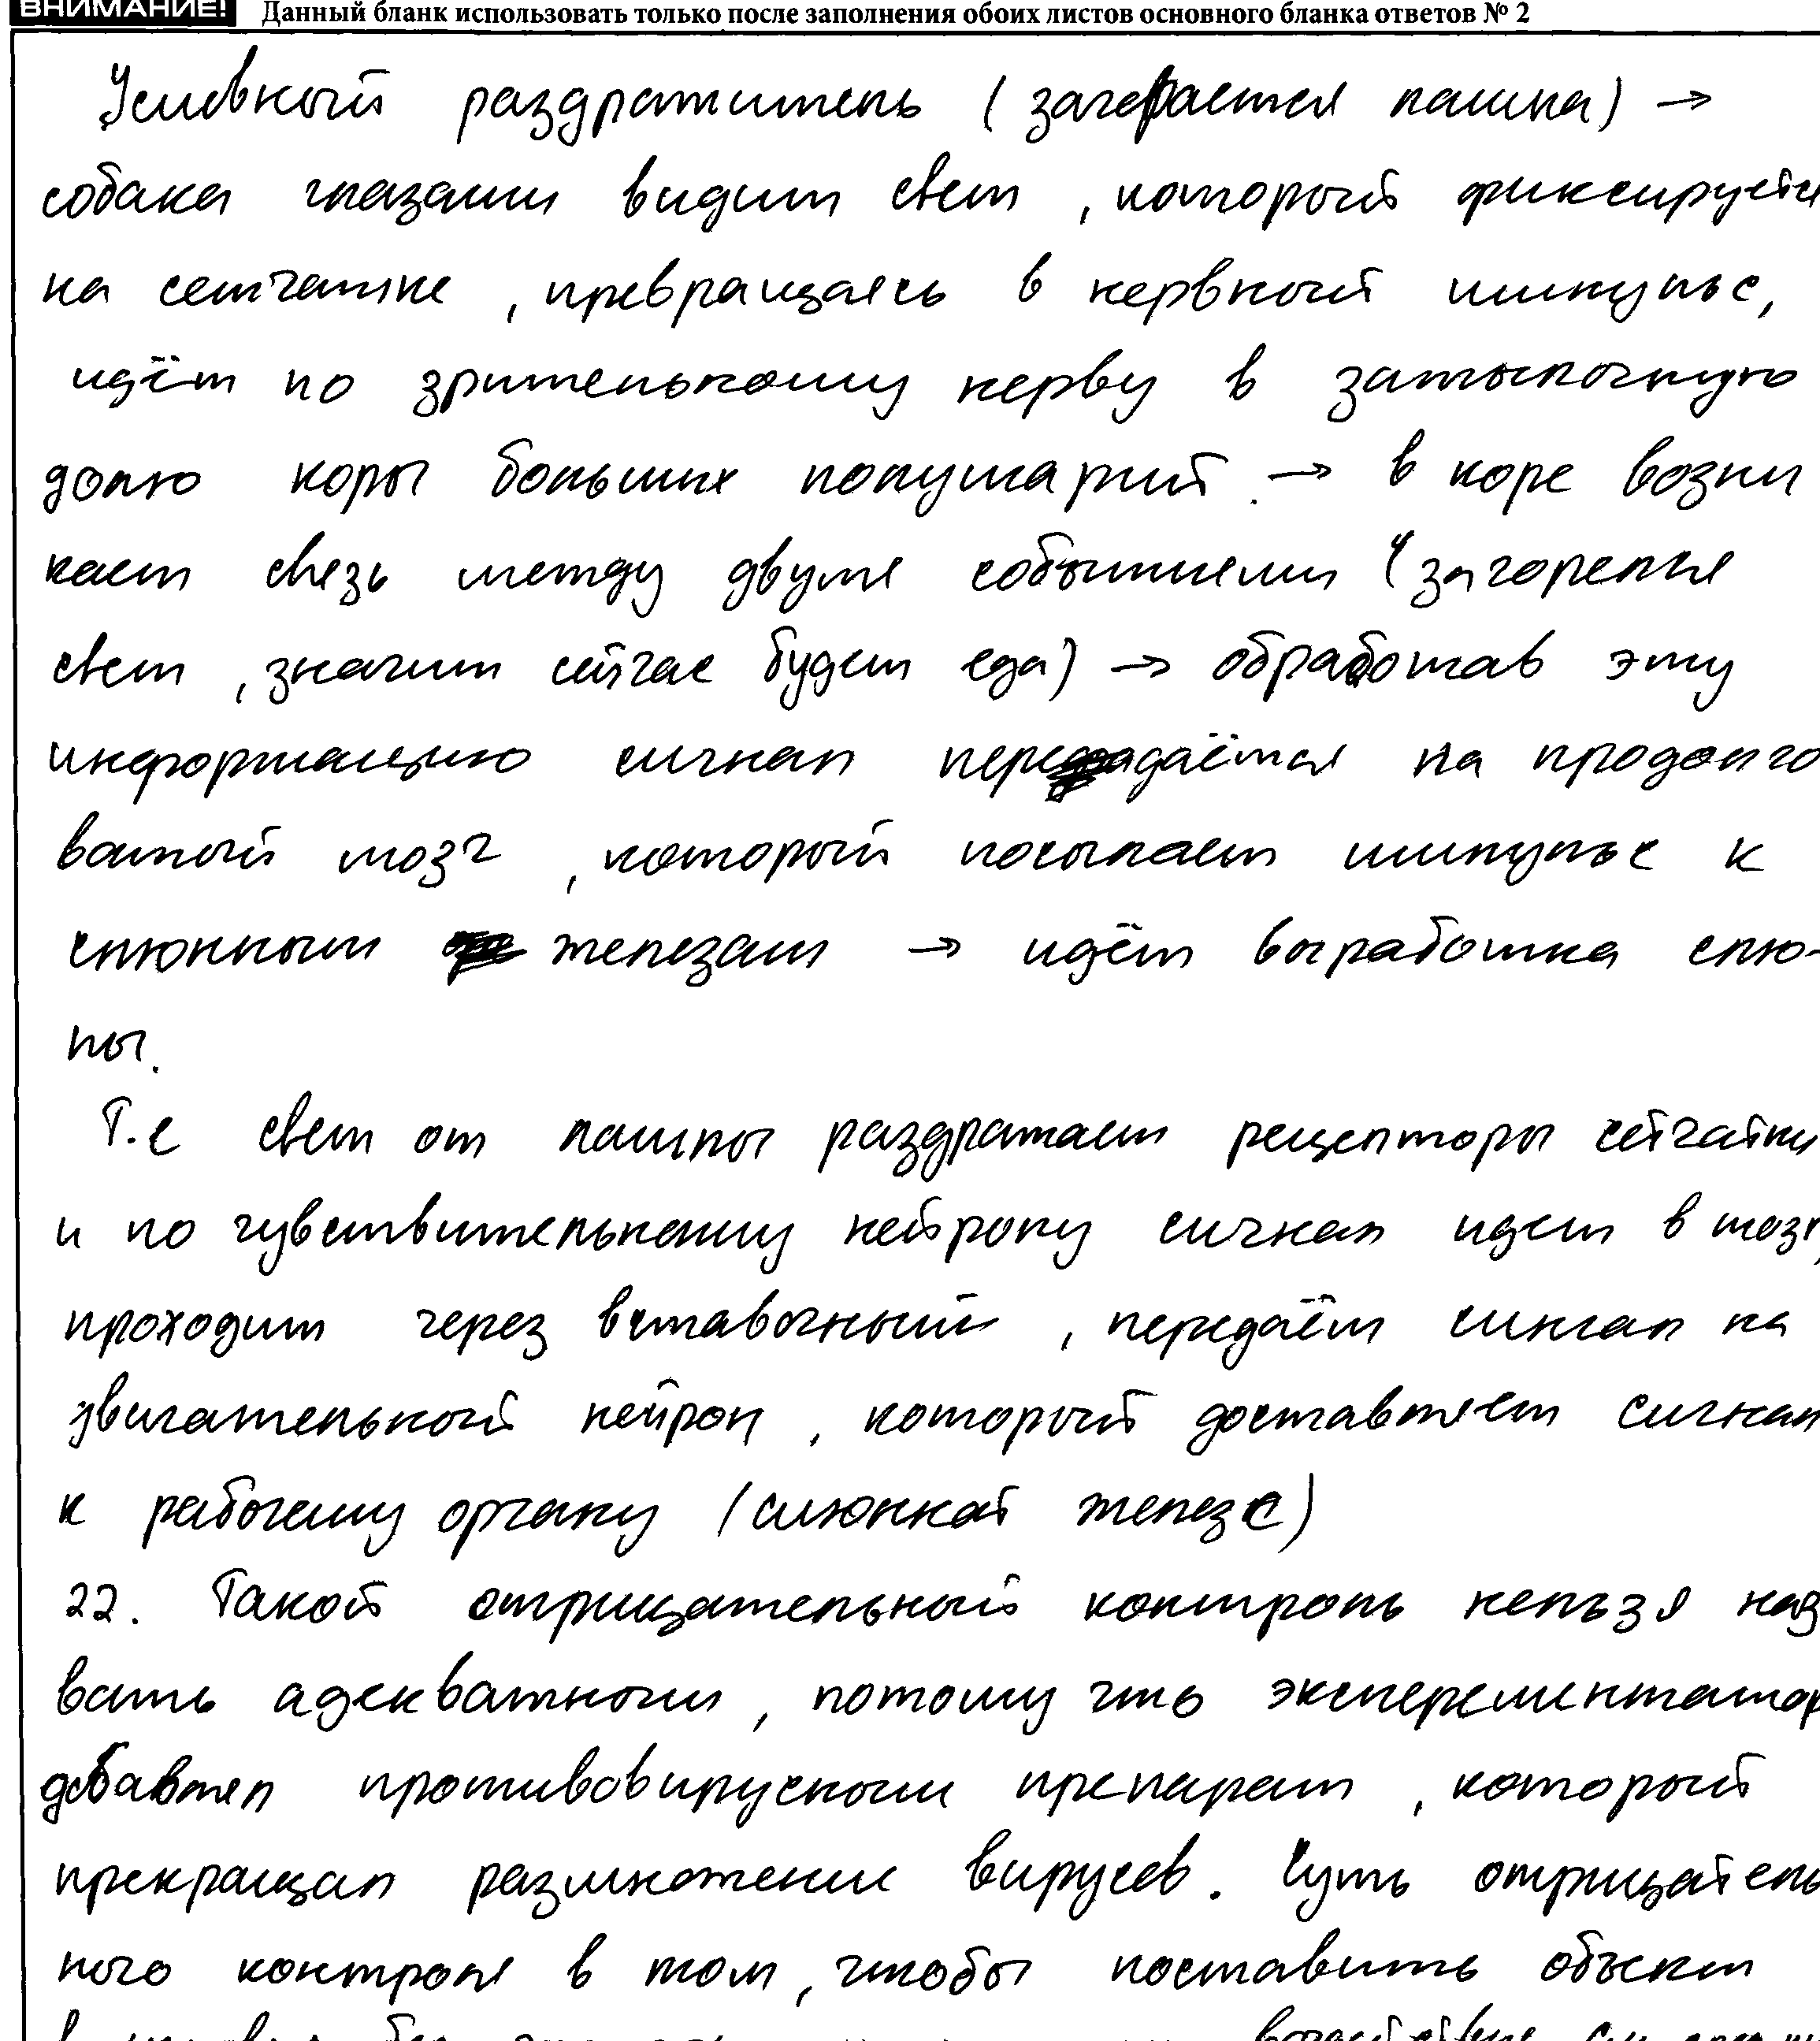 ВНИМАНИЕ! Данный бланк использовать только после заполнения обоих листов основного бланка ответов № 2
Условный раздражитель (загорается лампа) →
собака глазами видит свет, который фиксируется
на сетчатке, превращаясь в нервный импульс,
идёт по зрительному нерву в затылочную
долю коры больших полушарий. → в коре возни
кает связь между двумя событиями (загорелся
свет, значит сейчас будет еда) → обработав эту
информацию сигнал передаётся на продолго
ватый мозг, который посылает импульс к
слюнным железам → идёт выработка слю-
ны.
Т.е свет от лампы раздражает рецепторы сетчатки
и по чувствительному нейрону сигнал идет в мозг,
проходит через вставочный, передаёт сингал на
двигательный нейрон, который доставляет сигнал
к рабочему органу (слюнной железе)
22. Такой отрицательный контроль нельзя наз
вать адекватным, потому что эксперементатор
добавлял противовирусным препарат, который
прекращал размножение вирусов. Суть отрицатель
ного контроля в том, чтобы поставить объект